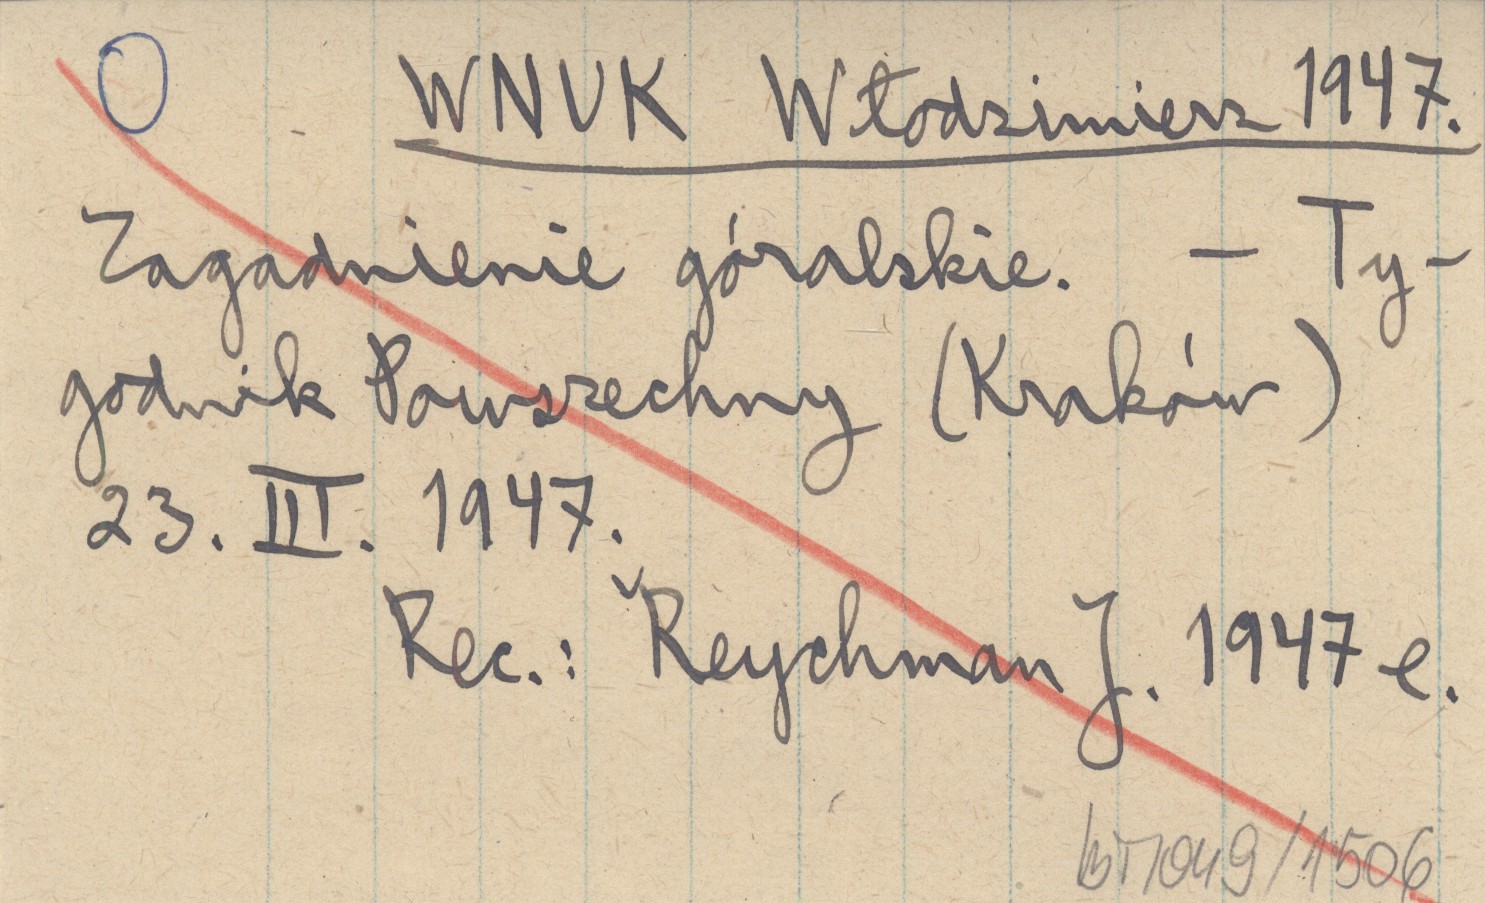 O WNUK Włodzimierz 1947.
Zagadnienie góralskie. – Ty-
godnik Powszechny (Kraków)
23. III. 1947.
Rec.: Reychman J. 1947 e.
/1506